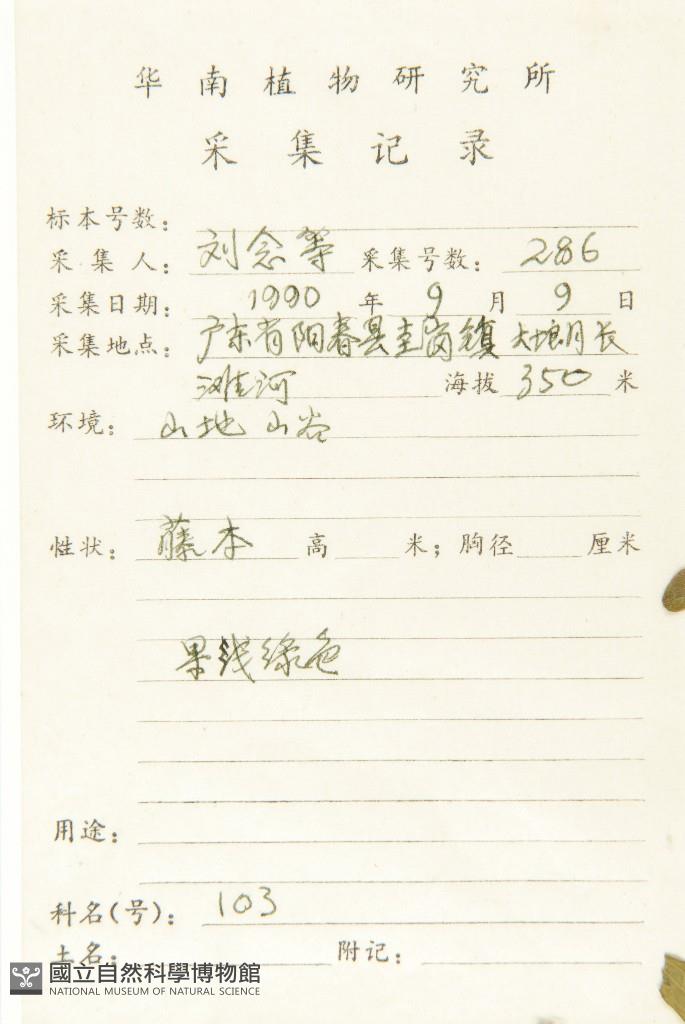 华南植物研究所
采集记录
标本号数：
采集人： 刘念等 采集号数： 286
采集日期： 1990 年 9 月 9 日
采集地点： 广东省阳春县圭岗镇大垠月长
滩河 海拔 350 米
环境： 山地 山谷
性状： 藤本 高 米；胸径 厘米
果浅绿色
用途：
科名(号)： 103
土名： 附记：
國立自然科學博物館
NATIONAL MUSEUM OF NATURAL SCIENCE